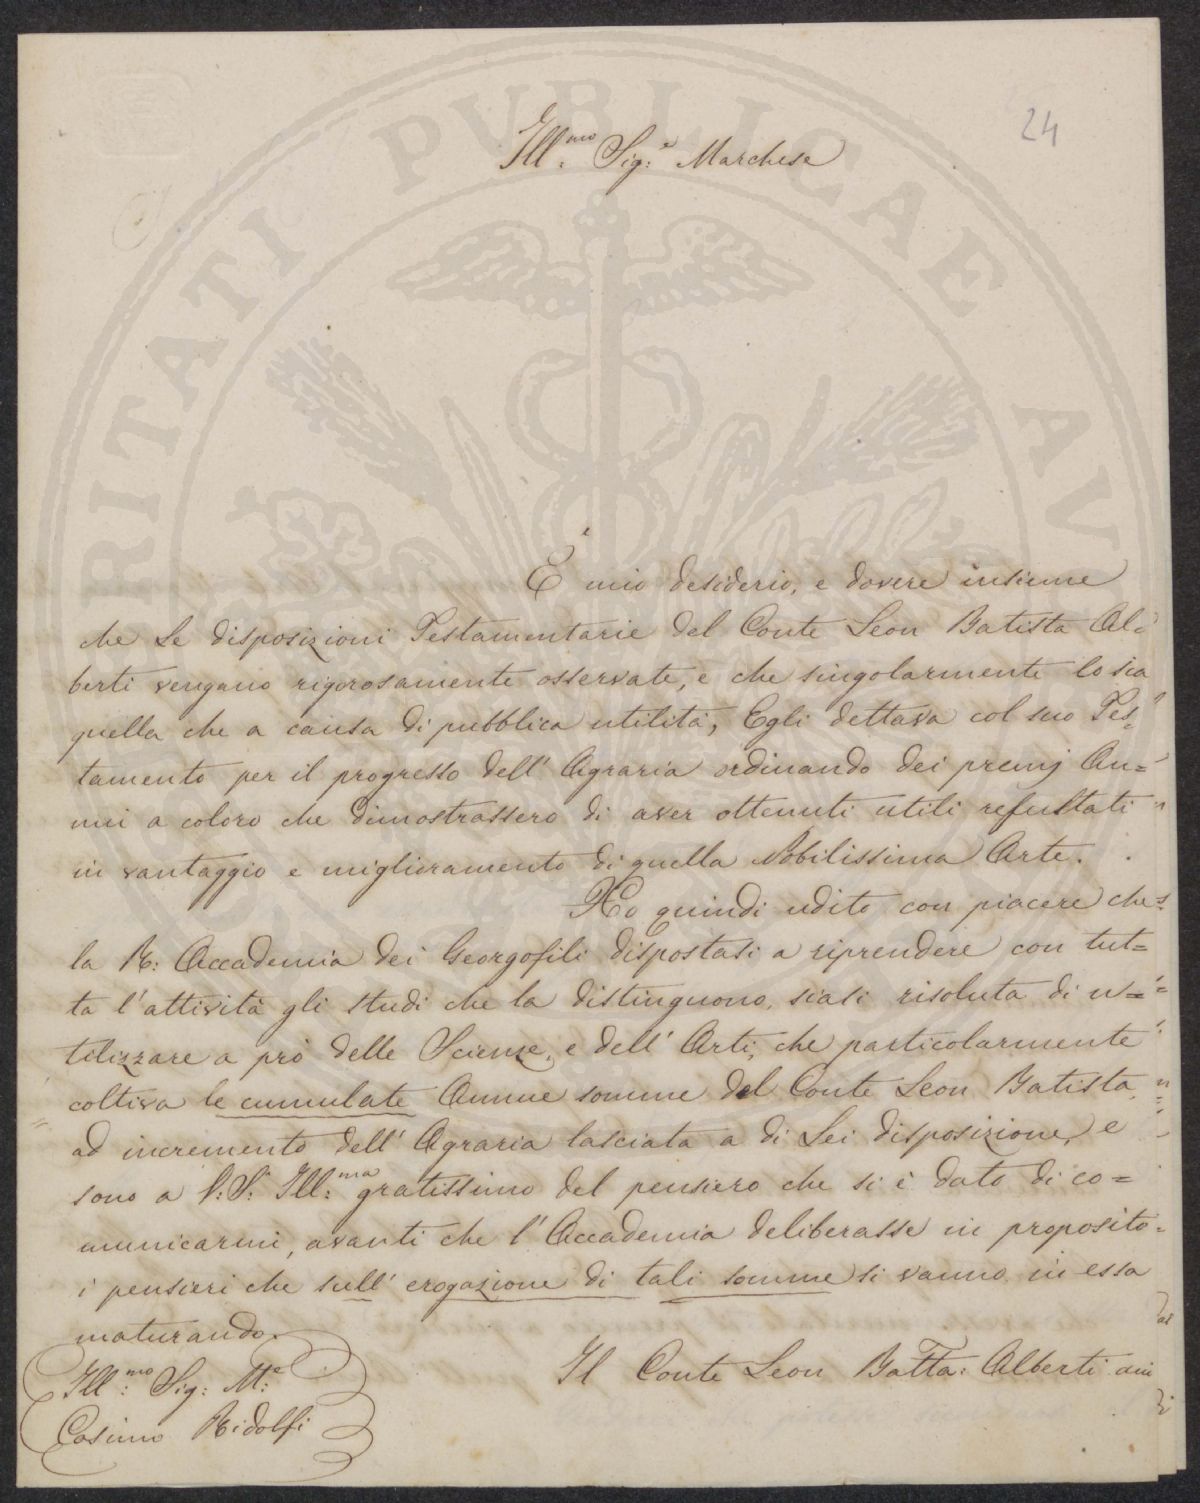 24
Ill:mo Sig:e Marchese
È mio desiderio, e dovere insieme
che le disposizioni Testamentarie del Conte Leon Batista Al=
berti vengano rigorosamente osservate, e che singolarmente lo sia
quella che a causa di pubblica utilità, Egli dettava col suo Tes=
tamento per il progresso dell' Agraria ordinando dei premj An=
nui a coloro che dimostrassero di aver ottenuti utili resultati
in vantaggio e miglioramento di quella Nobilissima Arte.
Ho quindi udito con piacere che
la R: Accademia dei Georgofili dispostasi a riprendere con tut=
ta l'attività gli studi che la distinguono, siasi risoluta di u=
tilizzare a prò delle Scienze, e dell' Arti, che particolarmente
coltiva le cumulate Annue somme del Conte Leon Batista
ad incremento dell' Agraria lasciata a di Lei disposizione, e
sono a V:S: Ill:ma gratissimo del pensiero che si è dato di co=
municarmi, avanti che l'Accademia deliberasse in proposito
i pensieri che sull' erogazione di tali somme si vanno in essa
maturando.
Il Conte Leon Batta: Alberti
Ill:mo Sig: M:e
Cosimo Ridolfi
PUBLICAE